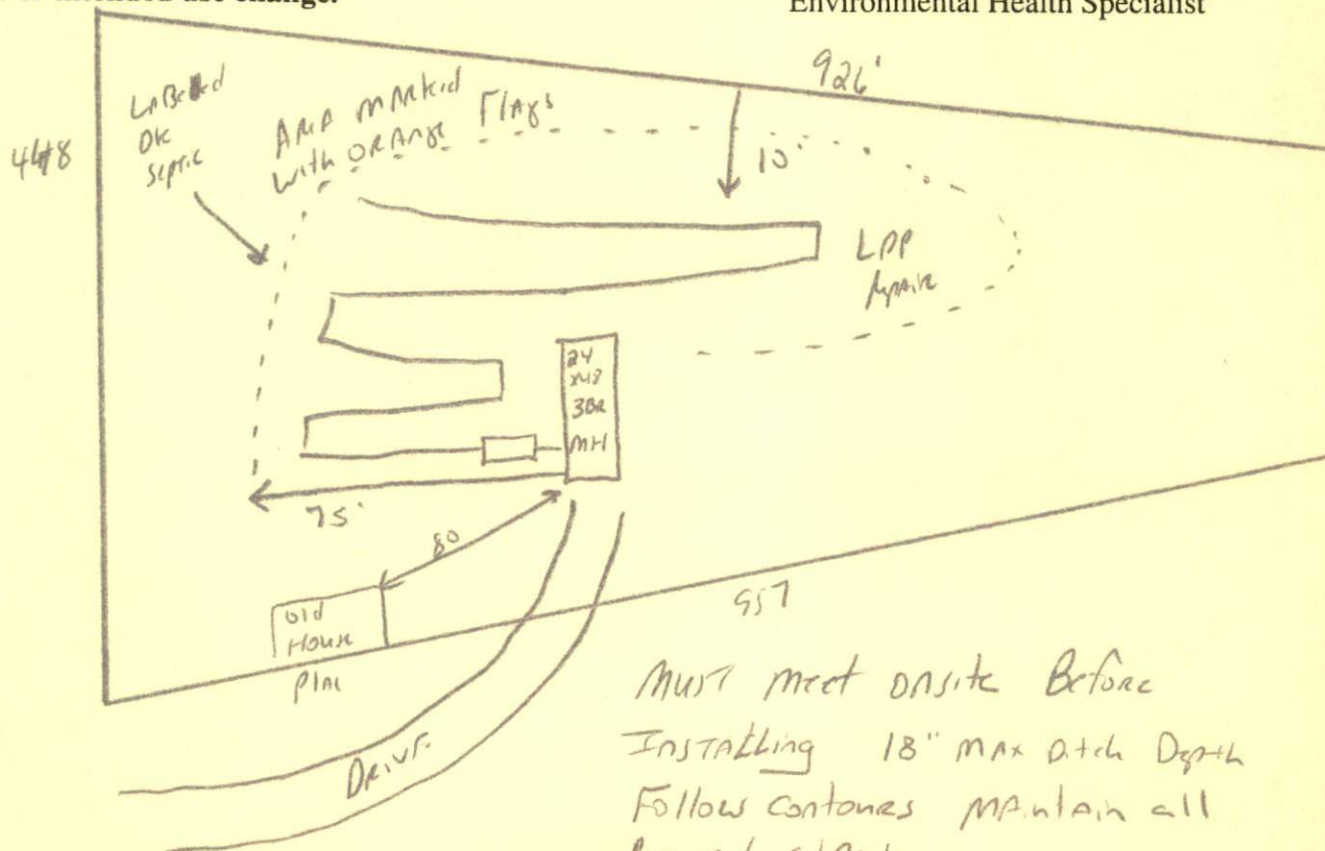 intended use change.
Environmental Health Specialist
926'
448
LABeled
OK
septic
AreA mARked
with ORAnge Flags
10'
LPP
Repair
24
x48
3BR
MH
75'
80
old
House
Place
957
DRIVE
Must meet onsite Before
InsTAlling 18" mAx Ditch Depth
Follow contours mAintAin all